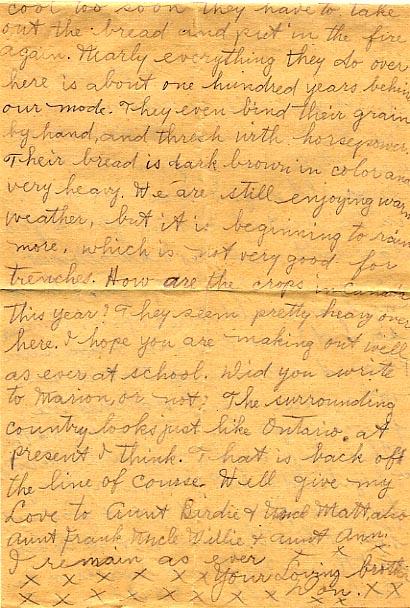 cool too soon they have to take
out the bread and put in the fire
again. Nearly everything they do over
here is about one hundred years behin
our mode. They even bind their grain
by hand, and thresh with horsepower.
Their bread is dark brown in color and
very heavy. We are still enjoying warm
weather, but it is beginning to rain
more, which is not very good for
trenches. How are the crops in Canada
this year? They seem pretty heavy over
here. I hope you are making out well
as ever at school. Did you write
to Marion, or not? The surrounding
country looks just like Ontario at
present I think. That is back off
the line of course. Well give my
Love to Aunt Birdie & Uncle Matt also
Aunt Frank Uncle Willie & Aunt Ann.
I remain as ever x x x x
x x x x x x Your Loving broth.
x x x x x x x x Don. x x